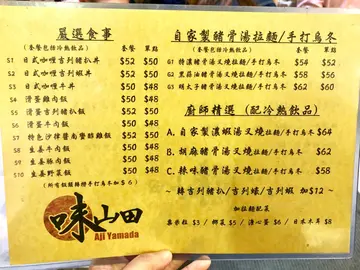 嚴選食事
(套餐包括冷熱飲品) 套餐 單點
S1 日式咖喱吉列豬扒飯 $52 $50
S2 日式咖喱吉列蝦丼 $52 $50
S3 日式咖喱牛丼 $50 $48
S4 滑蛋雞肉飯 $50 $48
S5 滑蛋牛肉飯 $50 $48
S6 滑蛋吉列豬扒飯 $52 $50
S7 特色沙律醬南蠻酢雞飯 $52 $50
S8 生姜牛肉飯 $50 $48
S9 生姜豚肉飯 $50 $48
S10 生姜野菜飯 $50 $48
(所有飯類轉拌手打烏冬加$6)
味山田
Aji Yamada
自家製豬骨湯拉麵/手打烏冬
(套餐包括冷熱飲品) 套餐 單點
G1 特濃豬骨湯叉燒拉麵/手打烏冬 $54 $52
G2 黑蒜油豬骨湯叉燒拉麵/手打烏冬 $58 $56
G3 明太子豬骨湯叉燒拉麵/手打烏冬 $62 $60
廚師精選 (配冷熱飲品)
A. 自家製濃蝦湯叉燒拉麵/烏冬 $64
B. 胡麻豬骨湯叉燒拉麵/手打烏冬 $62
C. 辣味豬骨湯叉燒拉麵/手打烏冬 $58
~ 轉吉列豬扒/吉列蠔/吉列蝦 加$12 ~
加拉麵配菜
粟米粒 $3 / 椰菜 $5 / 溏心蛋 $6 / 日本木耳 $8